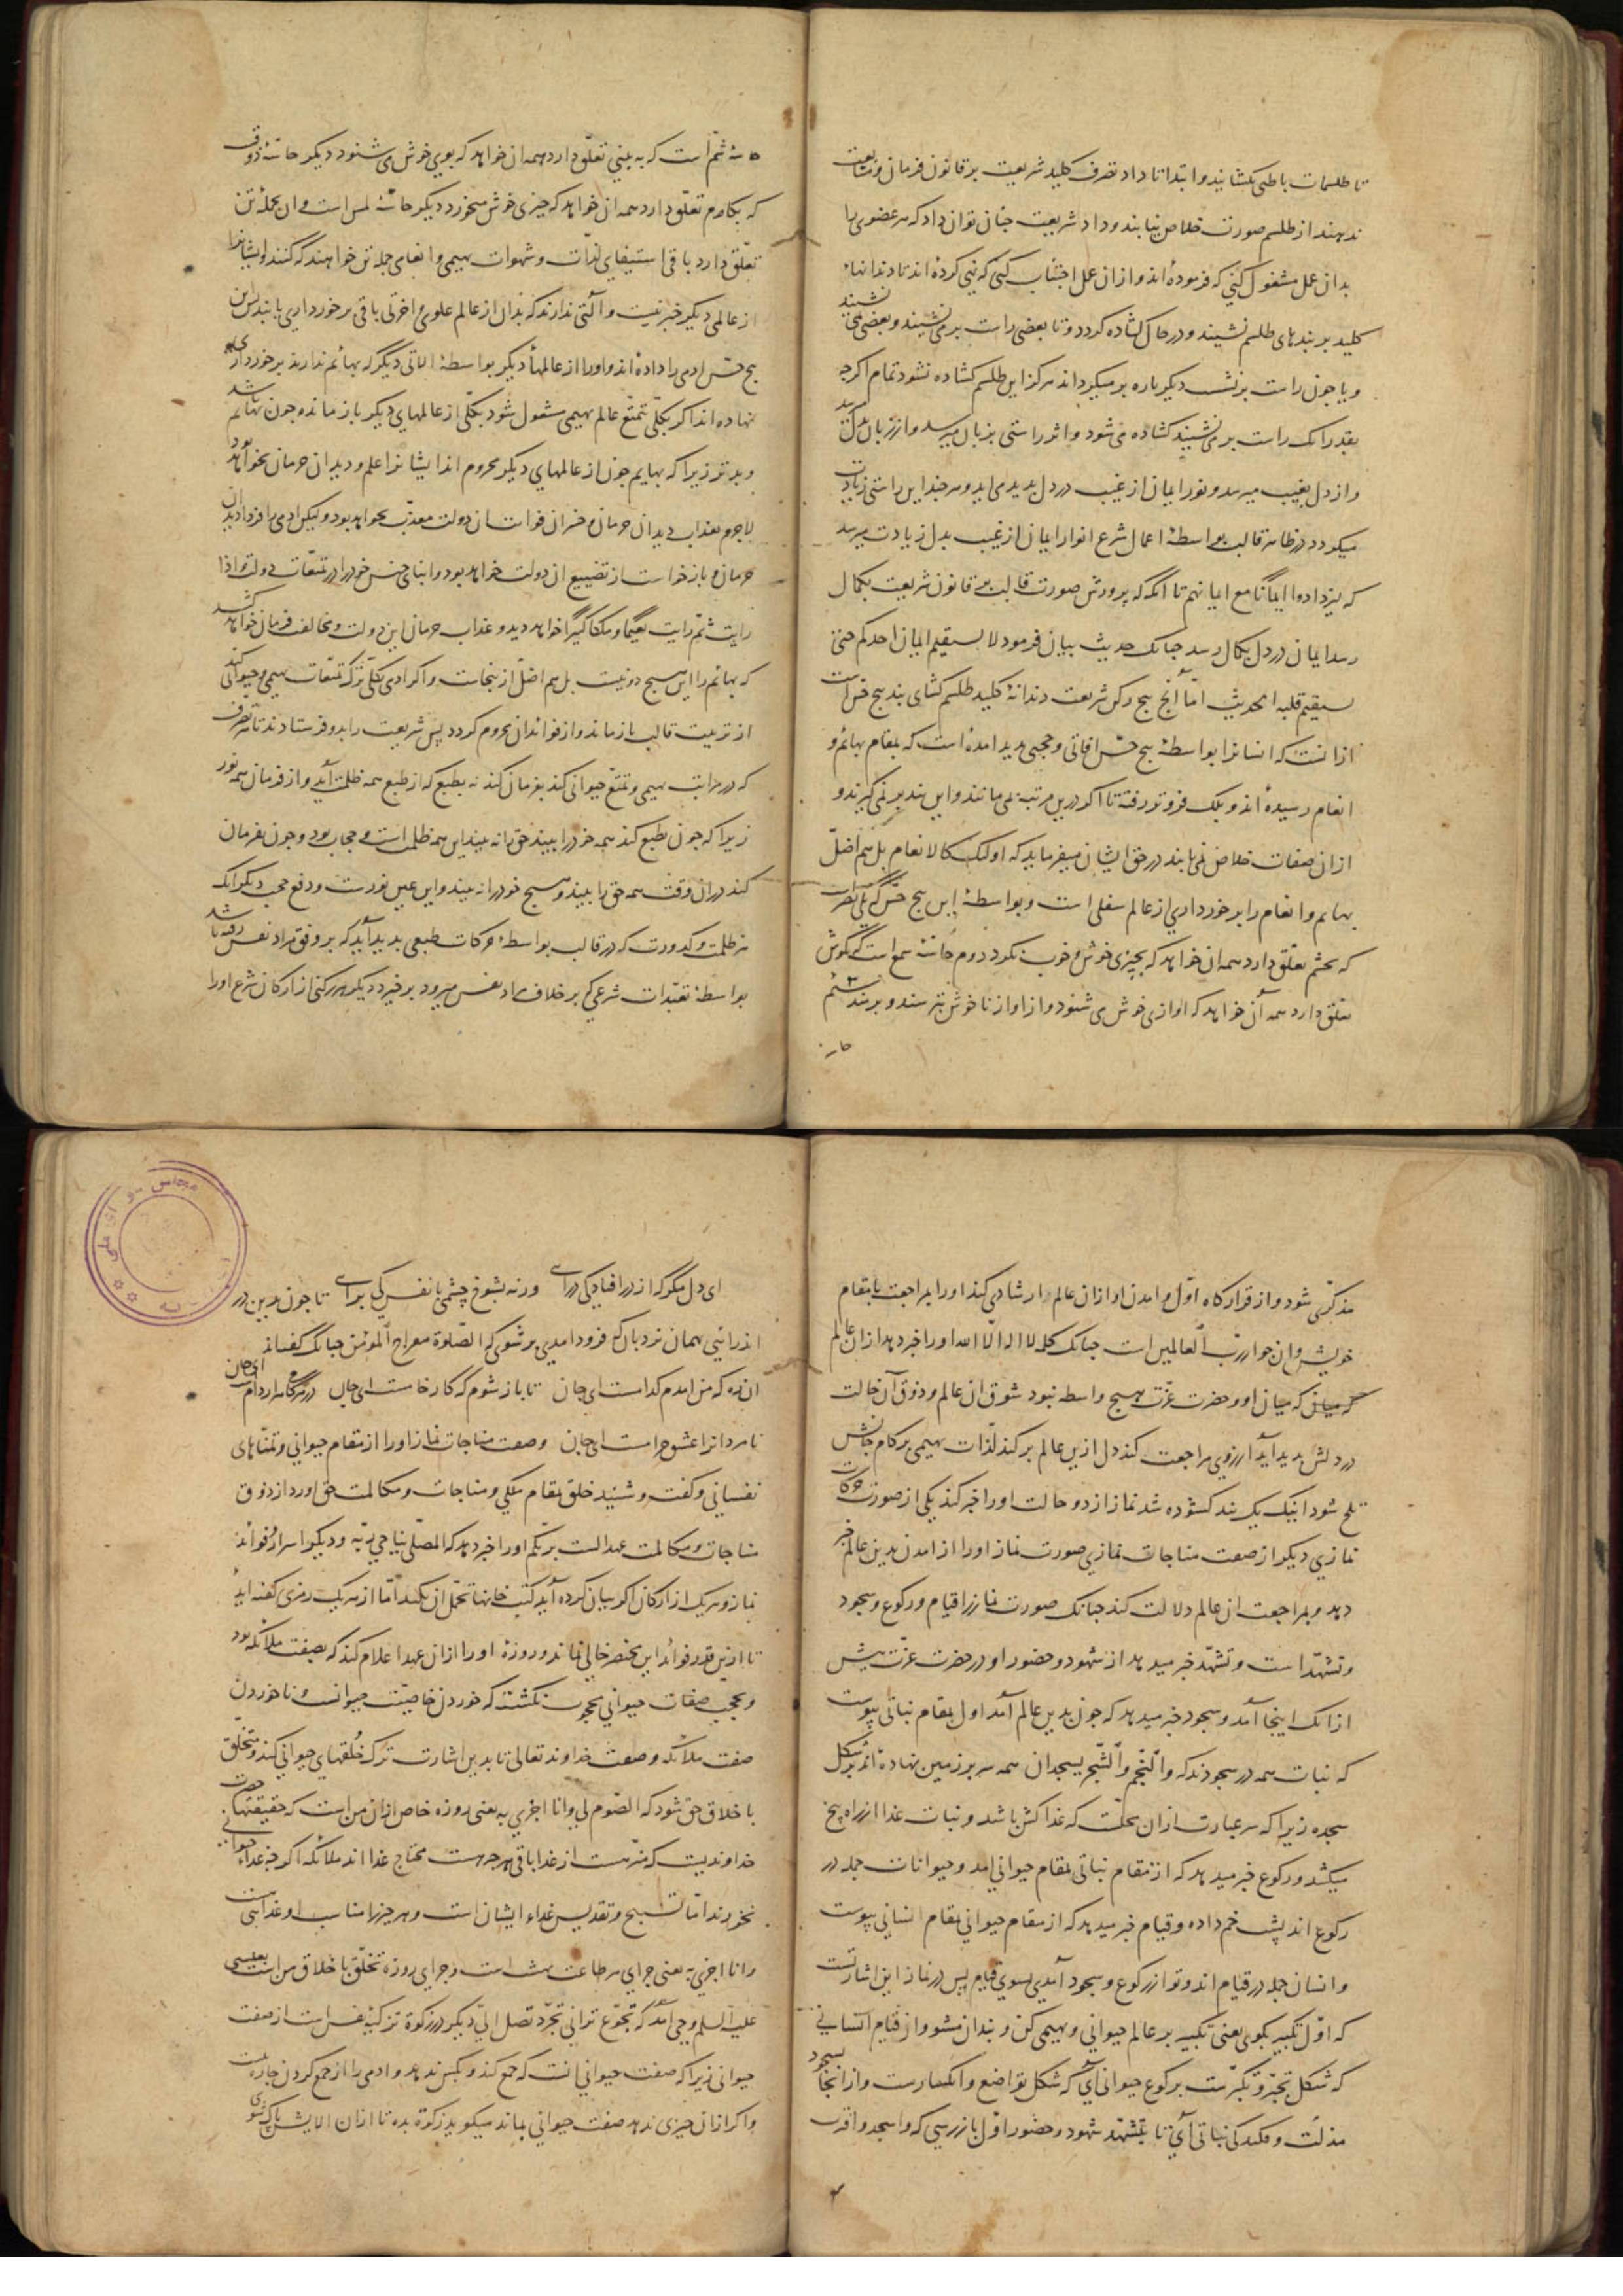 تا طلسمات باطنی بکشایند و ابتدا تا داد تصرف کلید شریعت بر قانون فرمان و متابعت
ندهند از طلسم صورت خلاص نیابند و داد شریعت چنان توان داد که هر عضوی را
بدان عمل مشغول کنی که فرموده‌اند و از آن عمل اجتناب کنی که نهی کرده‌اند تا دندانهاء
کلید بر بندهای طلسم نشیند و در حال کشاده کردد و تا بعضی راست بر می نشیند و بعضی نمی نشیند
و یا چون راست برنشست دیگرباره بر میکرداند هرکز این طلسم کشاده نشود تمام اکرچه
بقدر آنک راست بر می نشیند کشاده می شود و اثر راستی بزبان میرسد و از زبان بدل میرسد
و از دل بغیب میرسد و نور ایمان از غیب در دل پدید می آید و هر چند این راستی زیادت
میکردد در ظاهر قالب بواسطهٔ اعمال شرع انوار ایمان از غیب بدل زیادت میرسد
که لیزدادوا ایمانا مع ایمانهم تا آنکه که پرورش صورت قالب بر قانون شریعت بکمال
رسد ایمان در دل بکمال رسد چنانک حدیث بیان فرمود لا یستقیم ایمان احدکم حتی
یستقیم قلبه الحدیث اما آنچ پنج رکن شریعت دندانهٔ کلید طلسم کشای بند پنج حس است
ازانست که انسانرا بواسطهٔ پنج حس آفاتی و حجبی پدید آمده است که بمقام بهائم و
انعام رسیده‌اند و بلک فروتر رفته تا اکر درین مرتبه می مانند و این بند بر نمی کیرند و
از آن صفات خلاص نمی یابند در حق ایشان میفرماید که اولئک کالانعام بل هم اضل
بهایم و انعام را برخورداری از عالم سفلی است و بواسطهٔ این پنج حس که یکی بصر است
که بچشم تعلق دارد همه آن خواهد که بچیزی خوش و خوب نکرد دوم حاسّهٔ سمع است که بکوش
تعلق دارد همه آن خواهد که آوازی خوش می شنود و از آواز ناخوش بترسد و برمد سیم
حاسه
حاسّهٔ شم است که به بینی تعلق دارد همه آن خواهد که بوی خوش می شنود دیگر حاسّهٔ ذوق
که بکام تعلق دارد همه آن خواهد که چیزی خوش میخورد دیگر حاسّهٔ لمس است و آن بجمله تن
تعلق دارد باقی استیفای لذات و شهوات بهیمی و انعامی جمله تن خواهند که کنند و ایشانرا
از عالمی دیگر خبر نیست و آلتی ندارند که بدان از عالم علوی و اخروی باقی برخورداری یابند پس این
پنج حس آدمی را داده‌اند و او را از عالمها دیگر بواسطهٔ آلاتی دیگر که بهائم ندارند برخورداری
نهاده‌اند اکر بکلی بتمتع عالم بهیمی مشغول شود بکلی از عالمهای دیگر باز ماند و چون بهائم باشد
و بدتر زیرا که بهایم چون از عالمهای دیگر محروم اند ایشانرا علم و دید آن حرمان نخواهد بود
لاجرم بعذاب دید آن حرمان و خسران فوات آن دولت معذب نخواهد بود ولیکن آدمی را فردا دید آن
حرمان و بازخواست از تضییع آن دولت خواهد بود و ابنای جنس خود را در تمتعات دولت و اذا
رایت ثم رایت نعیما و ملکا کبیرا خواهد دید و عذاب حرمان این دولت و مخالفت فرمان خواهد کشید
که بهائم را این هیچ دو نیست بل هم اضل از ینجاست و اکر آدمی بکلی ترک تمتعات بهیمی و حیوانی کند
از تربیت قالب باز ماند و از فوائد آن محروم کردد پس شریعت را بدو فرستادند تا تصرف
که در مراتب بهیمی و تمتع حیوانی کند بفرمان کند نه بطبع که از طبع همه ظلمت آید و از فرمان همه نور
زیرا که چون بطبع کند همه خود را بیند حق را نه بیند این همه ظلمت است و حجاب بود و چون بفرمان
کند در آن وقت همه حق را بیند و هیچ خود را نه بیند و این عین نورست و رفع حجب دیگر آنک
هر ظلمت و کدورت که در قالب بواسطهٔ حرکات طبعی پدید آید که بر وفق مراد نفس رفته باشد تا
بواسطهٔ تعبدات شرعی که بر خلاف مراد نفس میرود برخیزد دیگر هر رکنی از ارکان شرع او را
مذکری شود و از قرارکاه اول و آمدن او از آن عالم ارشاد کند او را بمراجعت با مقام
خویش و آن جوار رب العالمین است چنانک کلمه لا اله الا الله او را خبر دهد از آن عالم
که میان او و حضرت عزت هیچ واسطه نبود شوق آن عالم و ذوق آن حالت
در دلش پدید آید آرزوی مراجعت کند دل ازین عالم برکند لذات بهیمی بر کام جانش
تلخ شود اینک یک بند کشوده شد نماز از دو حالت او را خبر کند یکی از صورت حرکات
نمازی دیگر از صفت مناجات نمازی صورت نماز او را از آمدن بدین عالم خبر
دهد و بمراجعت آن عالم دلالت کند چنانک صورت نماز را قیام و رکوع و سجود
و تشهد است و تشهد خبر میدهد از شهود و حضور او در حضرت عزت پیش
از آنک اینجا آمد و سجود خبر میدهد که چون بدین عالم آمد اول بمقام نباتی پیوست
که نبات همه در سجودند که والنجم والشجر یسجدان همه سر بر زمین نهاده‌اند بر شکل
سجده زیرا که سر عبارت از آن محلست که غذا کش باشد و نبات غذا از راه بیخ
میکشد و رکوع خبر میدهد که از مقام نباتی بمقام حیوانی آمد و حیوانات جمله در
رکوع اند پشت خم داده و قیام خبر میدهد که از مقام حیوانی بمقام انسانی پیوست
و انسان جمله در قیام اند و تو از رکوع و سجود آمدی بسوی قیام پس در نماز این اشارتست
که اول تکبیر بکوی یعنی تکبیر بر عالم حیوانی و بهیمی کن و بند آن مشو و از قیام انسانی
که شکل تجبر و تکبرست برکوع حیوانی آی که شکل تواضع و انکسارست و از آنجا بسجود
مذلت و فکندکی نباتی آی تا بتشهد شهود و حضور اول باز رسی که واسجد واقترب
ای دل مگر که از در افتادکی درآی ورنه بشوخ چشمی با نفس کی برآی تا چون بدین در
اندر آئی بهمان نردبان که فرود آمدی بر شوی که الصلوة معراج المؤمن چنانک گفته‌اند
آن ره که من آمدم کدامست ای جان تا باز شوم که کار خامست ای جان در هر کامی هزار دامست ای جان
نامردانرا عشق حرامست ای جان وصفت مناجات نماز او را از مقام حیوانی و تمناهای
نفسانی و گفت و شنید خلق بمقام ملکی و مناجات و مکالمت حق آورد از ذوق
مناجات و مکالمت عهد الست بربکم او را خبر دهد که المصلی یناجی ربه و دیگر اسرار و فوائد
نماز و هر یک از ارکان اکر بیان کرده آید کتب خانها تحمل آن نکند اما از هر یک رمزی گفته آید
تا ازین قدر فوائد این مختصر خالی نماند و روزه او را از آن عهد اعلام کند که بصفت ملائکه بود
و بحجب صفات حیوانی محجوب نکشته که خوردن خاصیت حیوانست و ناخوردن
صفت ملائکه وصفت خداوند تعالی تا بدین اشارت ترک خلقهای حیوانی کند و متخلق
باخلاق حق شود که الصوم لی و انا اجزی به یعنی روزه خاص از آن من است که حقیقتها حضرت
خداوندیست که منزهست از غذا باقی هرچه هست محتاج غذااند ملائکه اکرچه غذاء حیوانی
نخورند اما تسبیح و تقدیس غذاء ایشان است و هر چیز را مناسب او غذائیست
و انا اجزی به یعنی جزای هر طاعت بهشت است و جزای روزه تخلق باخلاق من است بعیسی
علیه السلم وحی آمد که تجوع ترانی تجرد تصل الی دیگر در زکوة تزکیهٔ نفس است از صفت
حیوانی زیرا که صفت حیوانی آنست که جمع کند و بکس ندهد و آدمی را از جمع کردن چاره نیست
و اکر از آن چیزی ندهد صفت حیوانی بماند میکوید زکوة بده تا از آن آلایش پاک شوی